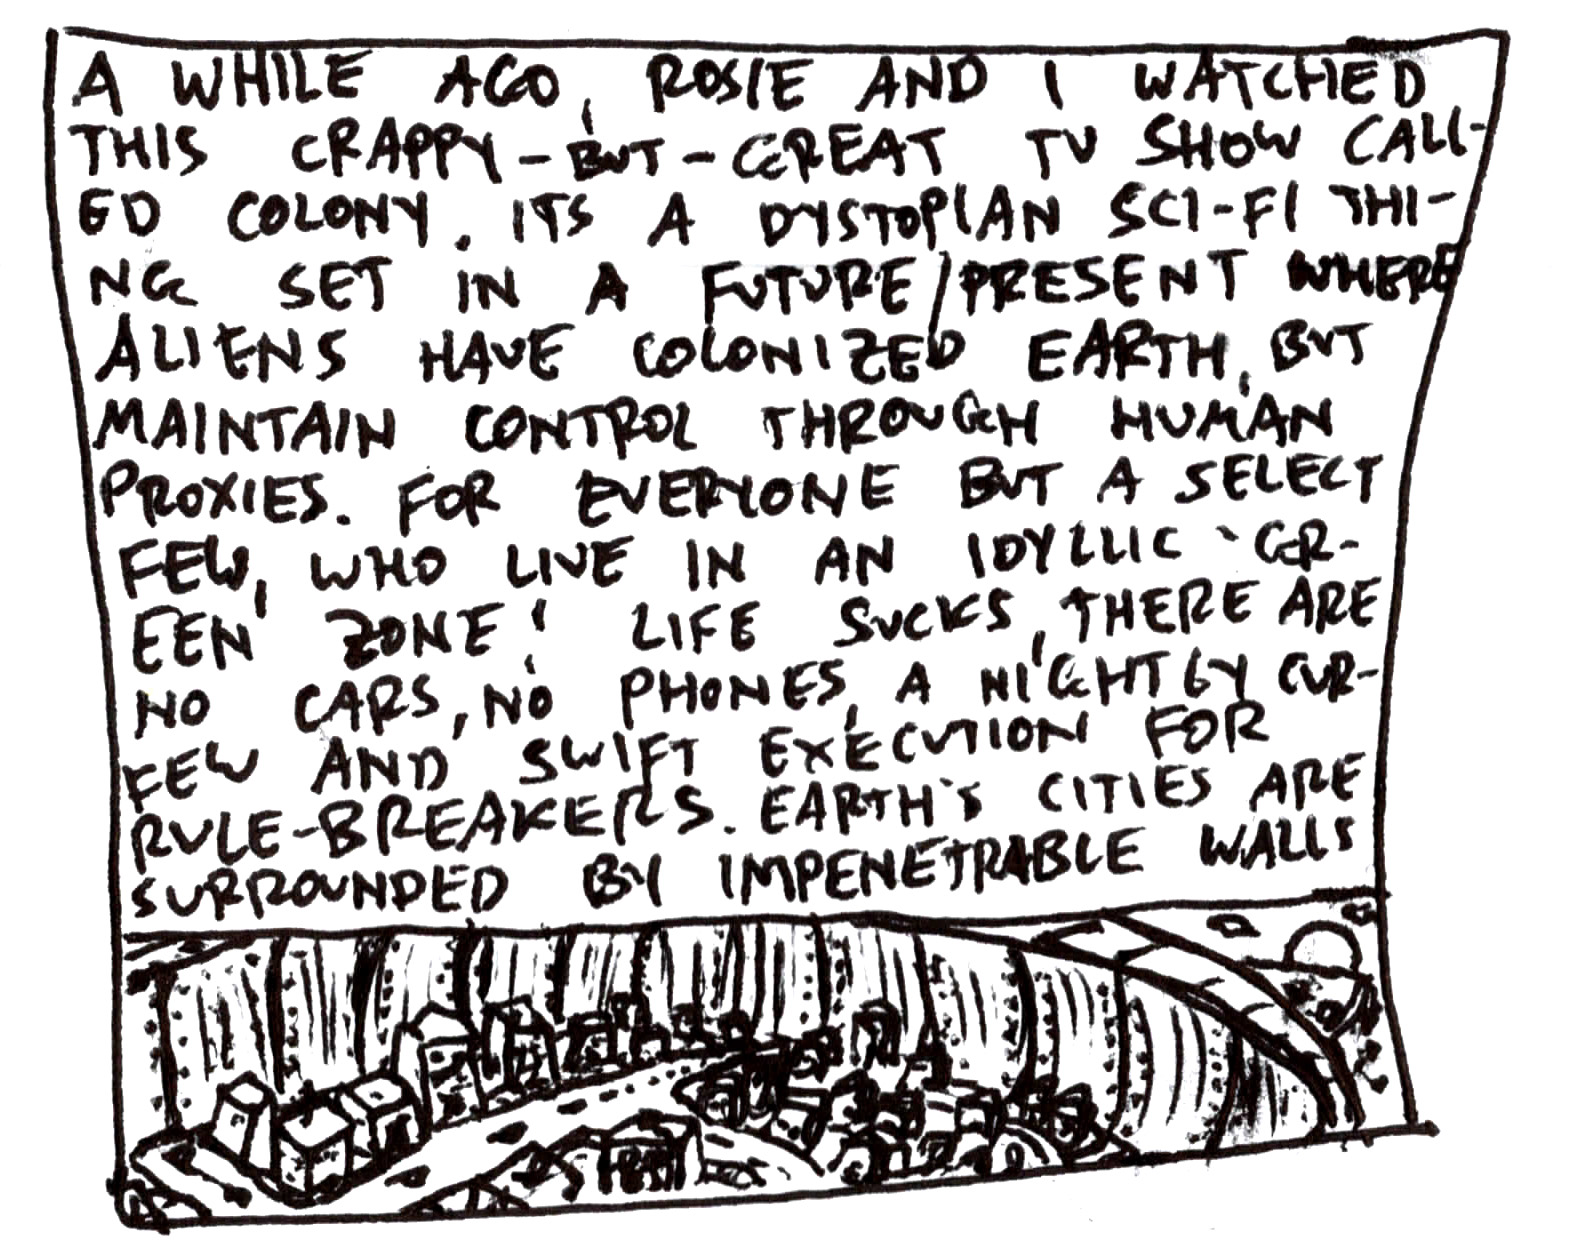 A WHILE AGO, ROSIE AND I WATCHED
THIS CRAPPY-BUT-GREAT TV SHOW CALL-
ED COLONY. ITS A DYSTOPIAN SCI-FI THI-
NG SET IN A FUTURE/PRESENT WHERE
ALIENS HAVE COLONIZED EARTH, BUT
MAINTAIN CONTROL THROUGH HUMAN
PROXIES. FOR EVERYONE BUT A SELECT
FEW, WHO LIVE IN AN IDYLLIC 'GR-
EEN ZONE', LIFE SUCKS, THERE ARE
NO CARS, NO PHONES, A NIGHTLY CUR-
FEW AND SWIFT EXECUTION FOR
RULE-BREAKERS. EARTH'S CITIES ARE
SURROUNDED BY IMPENETRABLE WALLS